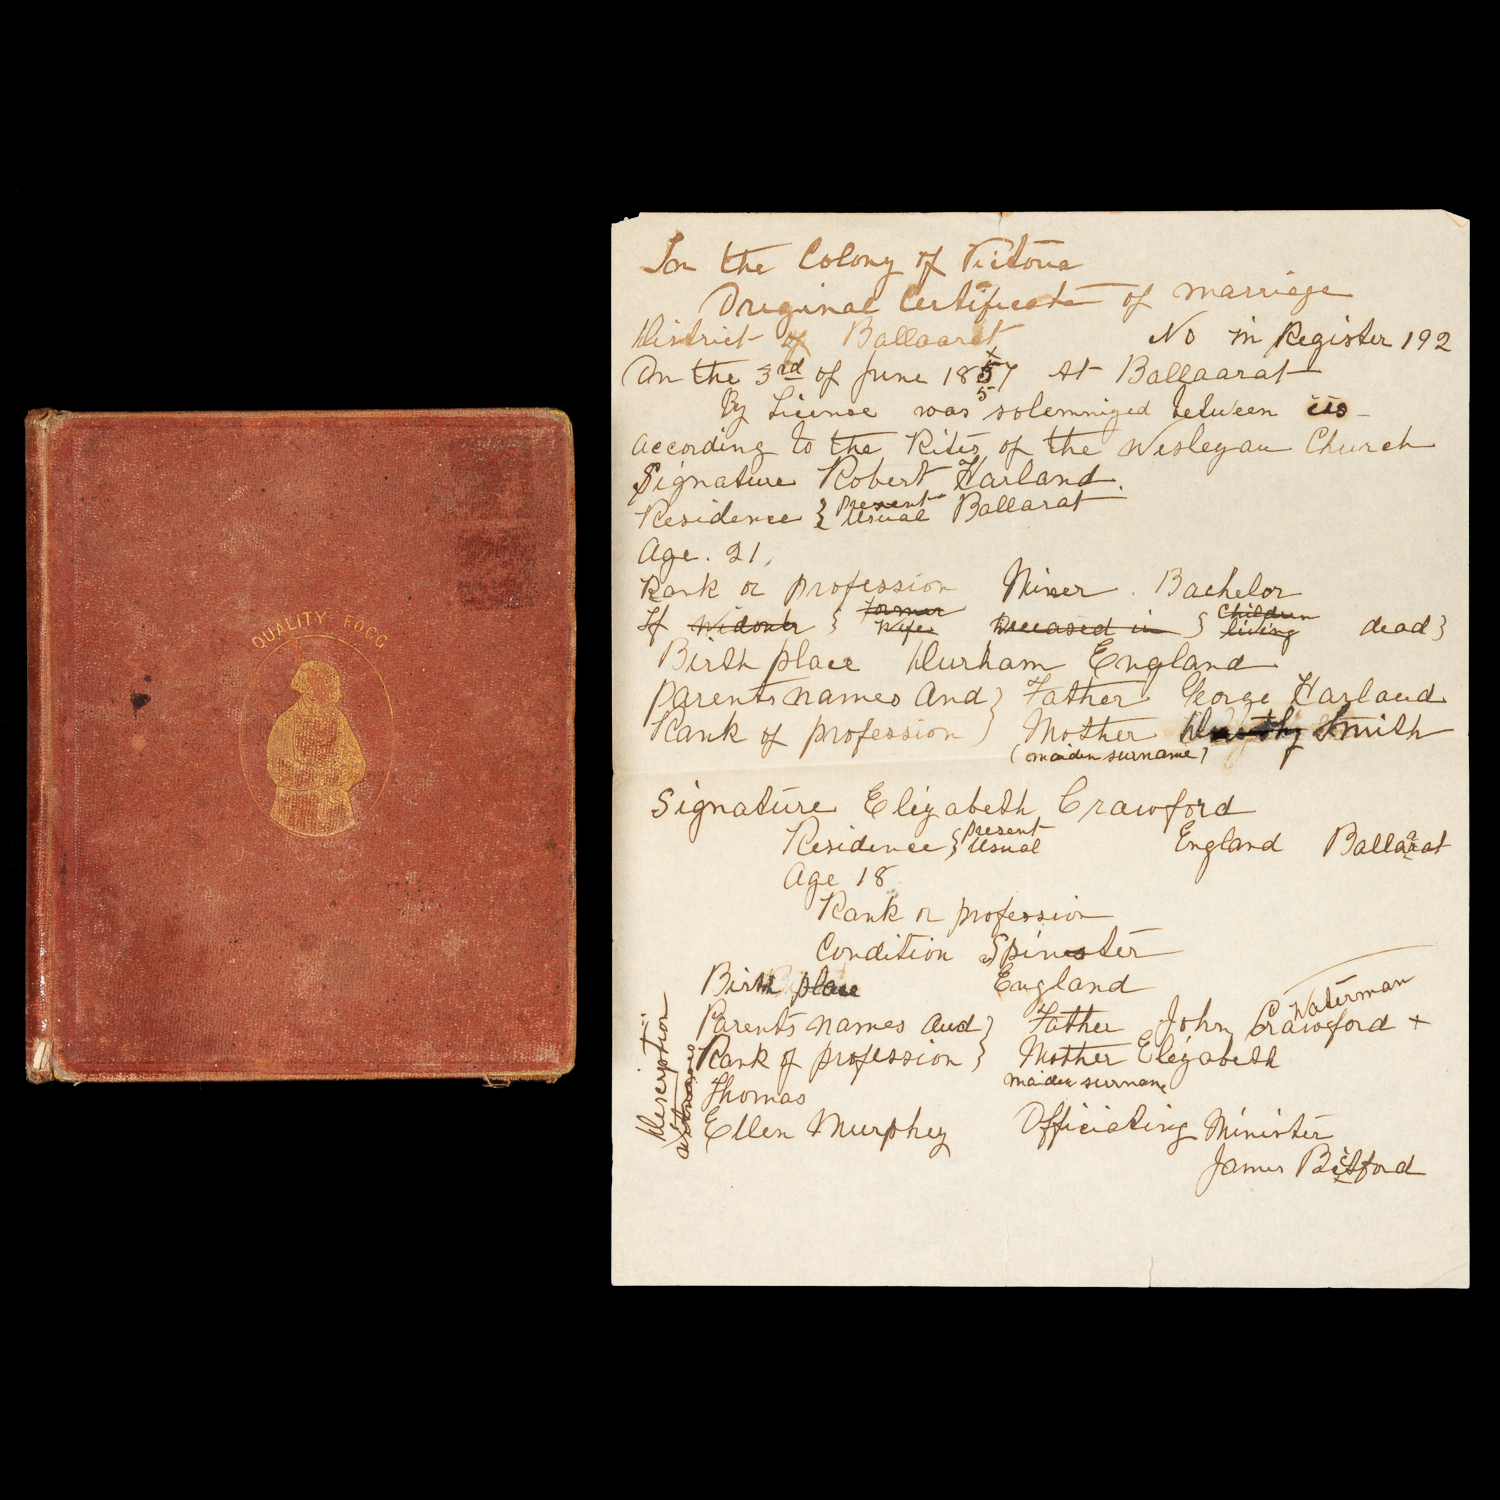 QUALITY FOGG
In the Colony of Victoria
Original Certificate of marriage
District of Ballaarat No in Register 192
On the 3rd of June 1857 At Ballaarat
By License was solemnized between us
according to the Rites of the Wesleyan Church
Signature Robert Harland.
Residence } Present Usual Ballarat
Age. 21.
Rank or profession Miner. Bachelor
If Widower } former Wife Deceased in } Children living dead }
Birth place Durham England
Parents names and } Father George Harland
Rank of profession } Mother Smith
(maiden surname)
Signature Elizabeth Crawford
Residence } present Usual England Ballaarat
Age 18
Rank or profession
Condition Spinester
Birth place England
Parents names and } Father John Crawford + Waterman
Rank of profession } Mother Elizabeth
maiden surname
Thomas
Ellen Murphey Officiating Minister
James
Description